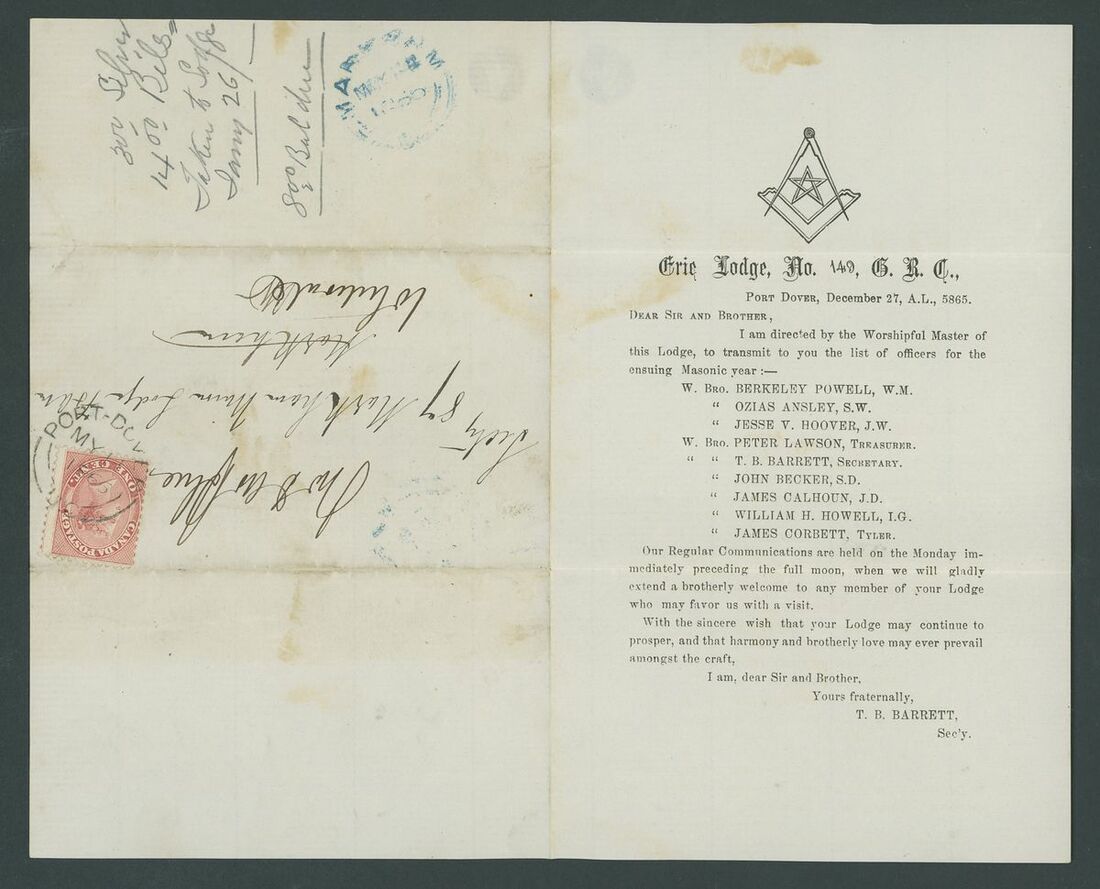 300 Silver
14 00 Bills
Taken to Lodge
Jany 26/
800 Bal due
MARKHAM
Whitevale
Markham
Secty 87 Markham Union Lodge
PORT-DOV
MY
CANADA POSTAGE
ONE CENT.
Erie Lodge, No. 149, G. R. C.,
PORT DOVER, December 27, A.L., 5865.
DEAR SIR AND BROTHER,
I am directed by the Worshipful Master of
this Lodge, to transmit to you the list of officers for the
ensuing Masonic year :—
W. BRO. BERKELEY POWELL, W.M.
“ OZIAS ANSLEY, S.W.
“ JESSE V. HOOVER, J.W.
W. BRO. PETER LAWSON, TREASURER.
“ “ T. B. BARRETT, SECRETARY.
“ JOHN BECKER, S.D.
“ JAMES CALHOUN, J.D.
“ WILLIAM H. HOWELL, I.G.
“ JAMES CORBETT, TYLER.
Our Regular Communications are held on the Monday im-
mediately preceding the full moon, when we will gladly
extend a brotherly welcome to any member of your Lodge
who may favor us with a visit.
With the sincere wish that your Lodge may continue to
prosper, and that harmony and brotherly love may ever prevail
amongst the craft,
I am, dear Sir and Brother,
Yours fraternally,
T. B. BARRETT,
Sec'y.